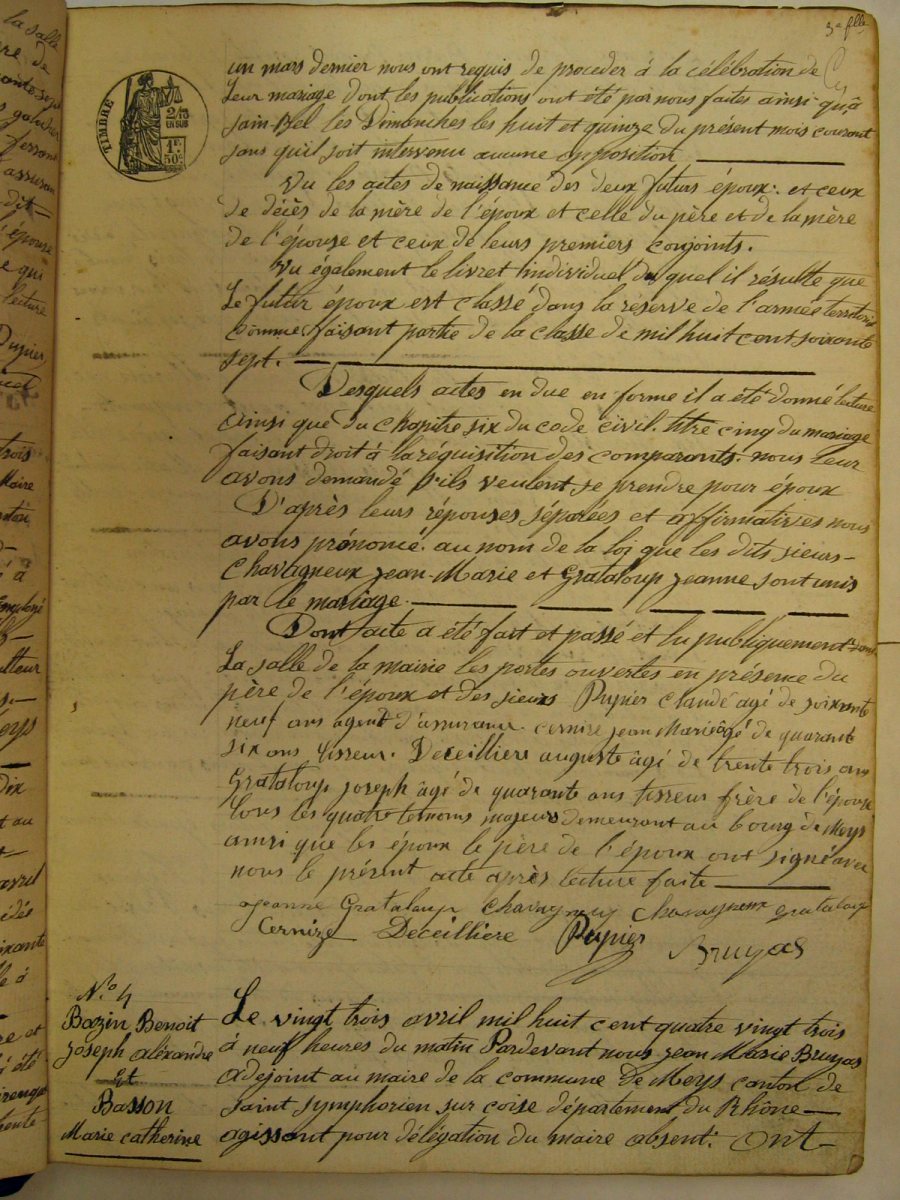 3e flle
TIMBRE
2/10
EN SUS
1F.
50c.
un mars dernier nous ont requis de proceder à la célébration de
leur mariage dont les publications ont été par nous faites ainsi qu'à
sain-Bel les Dimanches les huit et quinze du présent mois courant
sans qu'il soit intervenu aucune opposition
Vu les actes de naissance des deux futurs époux. et ceux
de décès de la mère de l'époux et celle du père et de la mère
de l'épouse et ceux de leurs premiers conjoints.
Vu également le livret individuel duquel il résulte que
Le futur époux est classé dans la réserve de l'armée territorial
comme faisant partie de la classe de mil huit cent soixante
sept.
Desquels actes en due en forme il a été donné lecture
ainsi que du chapitre six du code civil. titre cinq du mariage
faisant droit à la réquisition des comparants. nous leur
avons demandé s'ils veulent se prendre pour époux
D'après leurs réponses séparées et affirmatives nous
avons prénoncé. au nom de la loi que les dits sieurs-
Chavagneux jean-Marie et Grataloup jeanne sont unis
par le mariage.
Dont acte a été fait et passé et lu publiquement dans
La salle de la mairie les portes ouvertes en présence du
père de l'époux et des sieurs Pupier claude agé de soixante
neuf ans agent d'assurance. cernize jean Marie âgé de quarante
six ans tisseur. Deceilliere auguste âgé de trente trois ans
Grataloup joseph âgé de quarante ans tisseur frère de l'épouse
tous les quatre temoins majeurs demeurant au bourg de Meys
ainsi que les époux le père de l'époux ont signé avec
nous le présent acte après lecture faite
jeanne Grataloup chavagneux chavagneux grataloup
Cernize Deceilliere Pupier Bruyas
N.o 4
Bazin Benoit
joseph alexandre
Et
Basson
Marie catherine
Le vingt trois avril mil huit cent quatre vingt trois
à neuf heures du matin Pardevant nous jean Marie Bruyas
adejoint au maire de la commune de Meys canton de
saint symphorien sur coise département du Rhône
agissant pour délégation du maire absent. ont